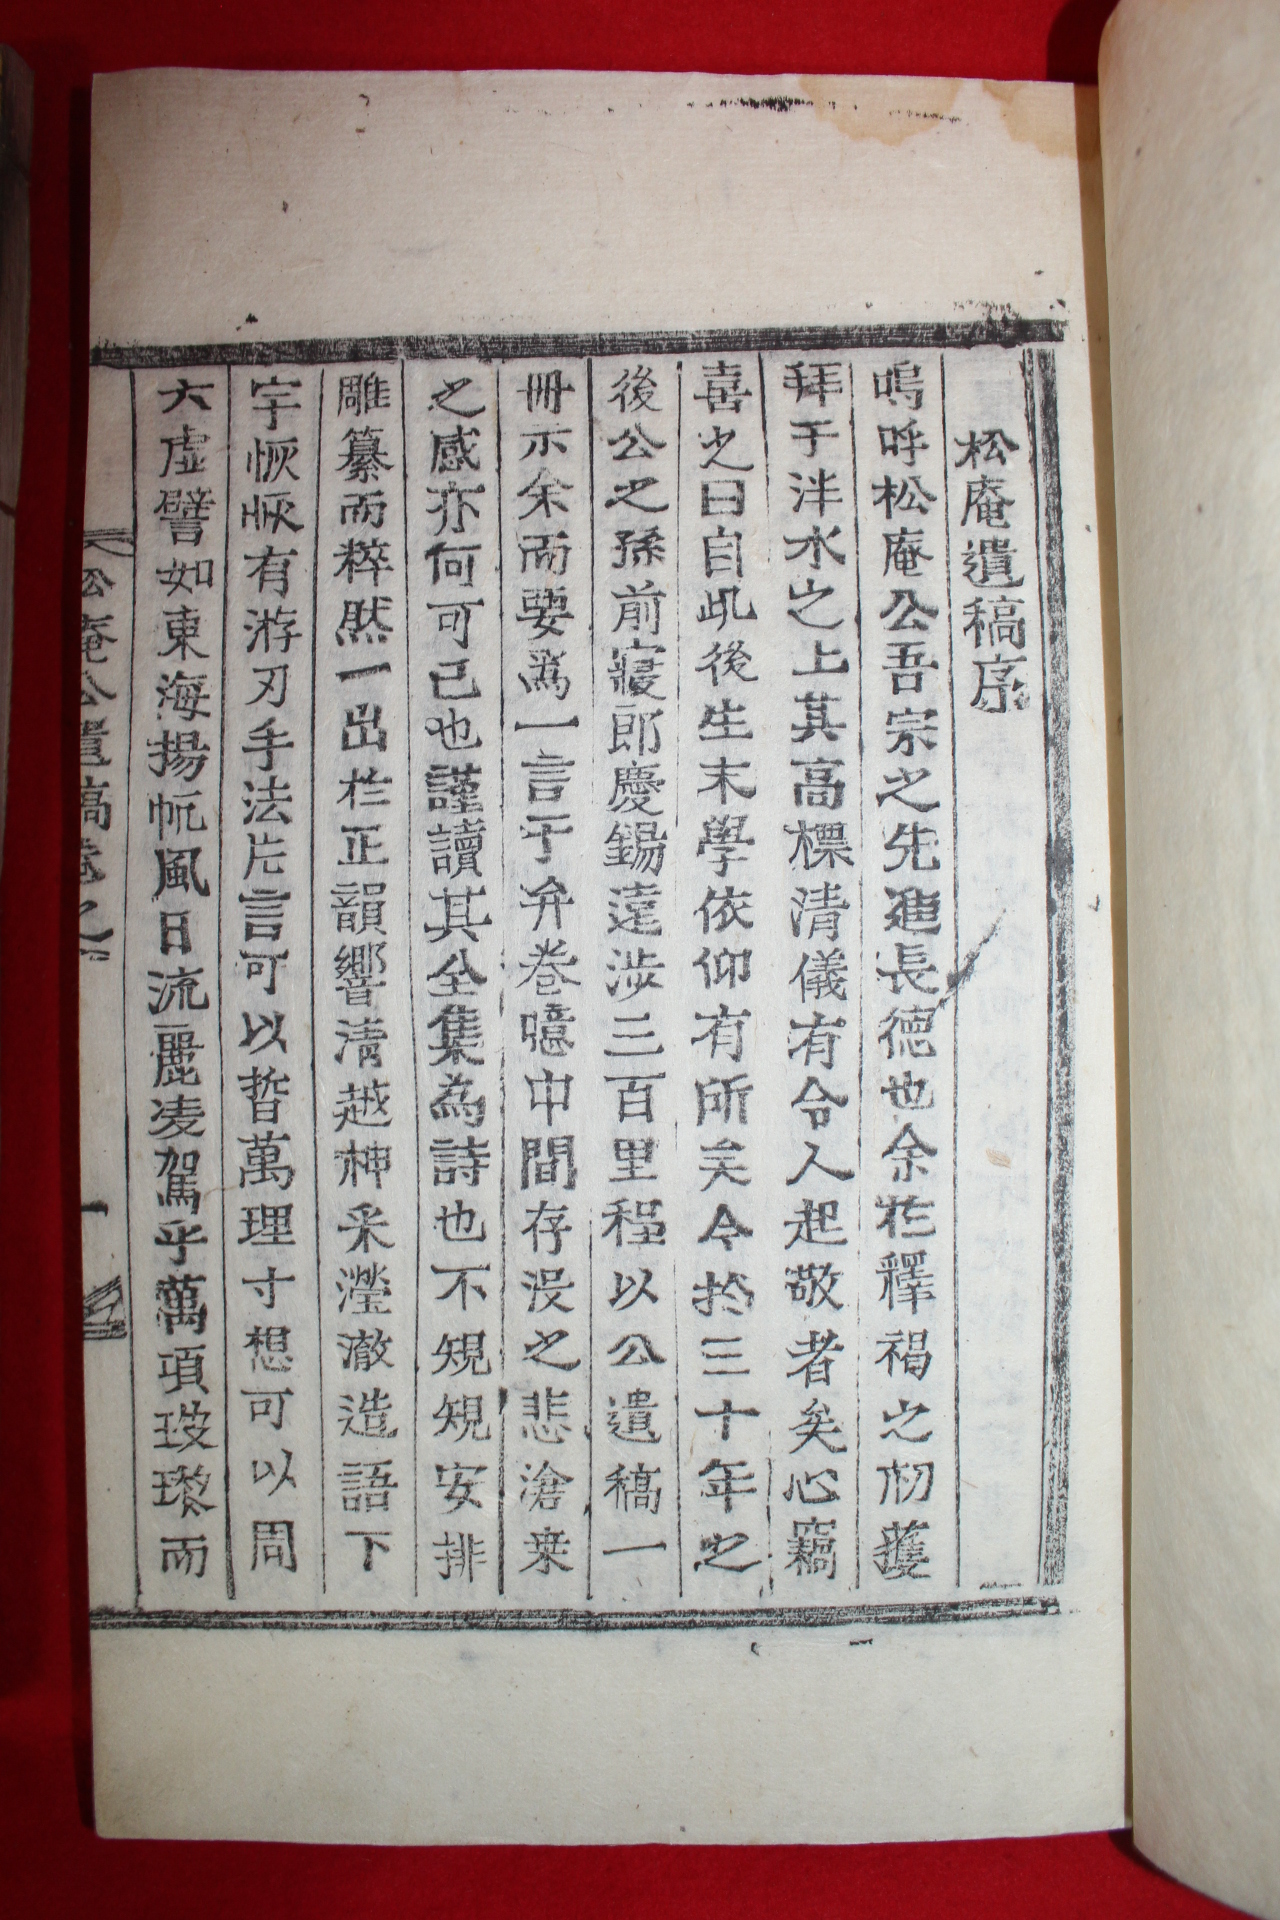 松庵遺稿序
嗚呼松庵公吾宗之先進長德也余於釋褐之初獲
拜于泮水之上其高標清儀有令人起敬者矣心竊
喜之曰自此後生末學依仰有所矣今於三十年之
後公之孫前寢郎慶錫遠涉三百里程以公遺稿一
冊示余而要爲一言于弁卷噫中間存沒之悲滄桒
之感亦何可已也謹讀其全集為詩也不規規安排
雕纂而粹然一出於正韻響淸越神采瀅澈造語下
字恢恢有游刃手法片言可以晢萬理寸想可以周
六虛譬如東海揚帆風日流麗凌駕乎萬項玻瓈而
松庵公遺稿卷之一
一